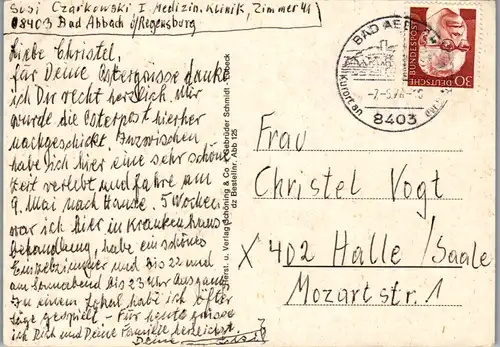 Susi Czarkowski I Medizin. Klinik, Zimmer 41
8403 Bad Abbach ü/Regensburg
Liebe Christel,
für Deine Ostergrüsse danke
ich Dir recht herzlich. Mir
wurde die Osterpost hierher
nachgeschickt. Inzwischen
habe ich hier eine sehr schöne
Zeit verlebt und fahre am
9. Mai nach Hause. 5 Wochen
war ich hier in Krankenhaus
behandlung, habe ein schönes
Einzelzimmer und bis 22 und
am Sonnabend bis 23 Uhr Ausgang
In einem Lokal habe ich öfter
gespielt - Für heute grüsse
ich Dich und Deine Familie herzlichst.
Deine Susi
Herst. u. Verlag Schöning & Co + Gebrüder Schmidt, Lübeck
Bestellnr. Abb 125
BAD ABBACH
Kurort an
8403
DEUTSCHE BUNDESPOST
30
Frau
Christel Vogt
X 402 Halle/Saale
Mozartstr. 1